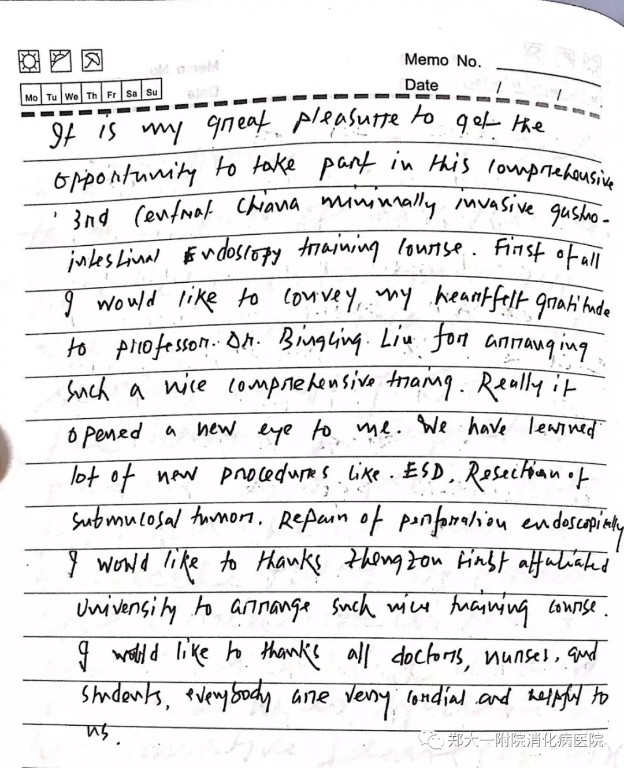 Memo No.
Date / /
Mo Tu We Th Fr Sa Su
It is my great pleasure to get the
opportunity to take part in this comprehensive
3rd Central Chiana minimally invasive gastro-
intestinal Endoscopy training course. First of all
I would like to convey my heartfelt gratitude
to professor. Dr. Bingling. Liu for arranging
such a nice comprehensive traing. Really it
opened a new eye to me. We have learned
lot of new procedures like ESD, Resection of
submucosal tumors. Repair of perforation endoscopically
I would like to thanks Zhengzou First affuliated
University to arrange such nice training course.
I would like to thanks all doctors, nurses, and
students, everybody are very cordial and helpful to
us.
郑大一附院消化病医院